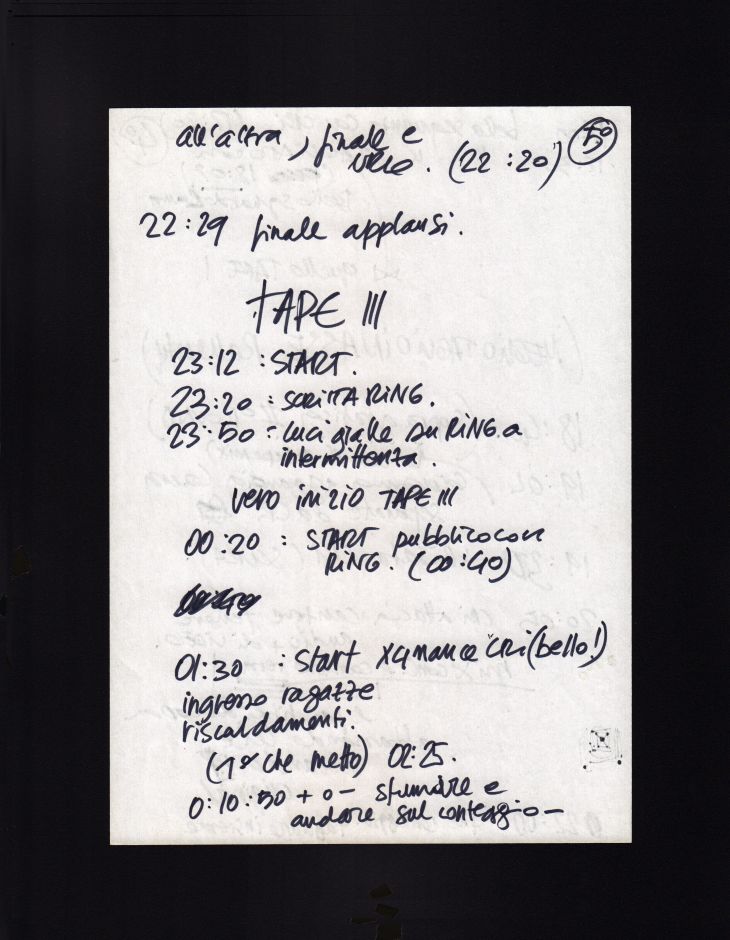 all'altra, finale e
(22:20)
5°
22:29 finale applausi.
TAPE III
23:12 : START.
23:20 : SCRITTA RING.
23:50 : luci gialle su RING a
intermittenza.
vero inizio TAPE III
00:20 : START pubblico con
RING. (00:40)
01:30 : Start x CRI (bello!)
ingresso ragazze
riscaldamenti.
(1° che metto) 02:25.
0:10:50 + o - sfumare e
andare sul conteggio -